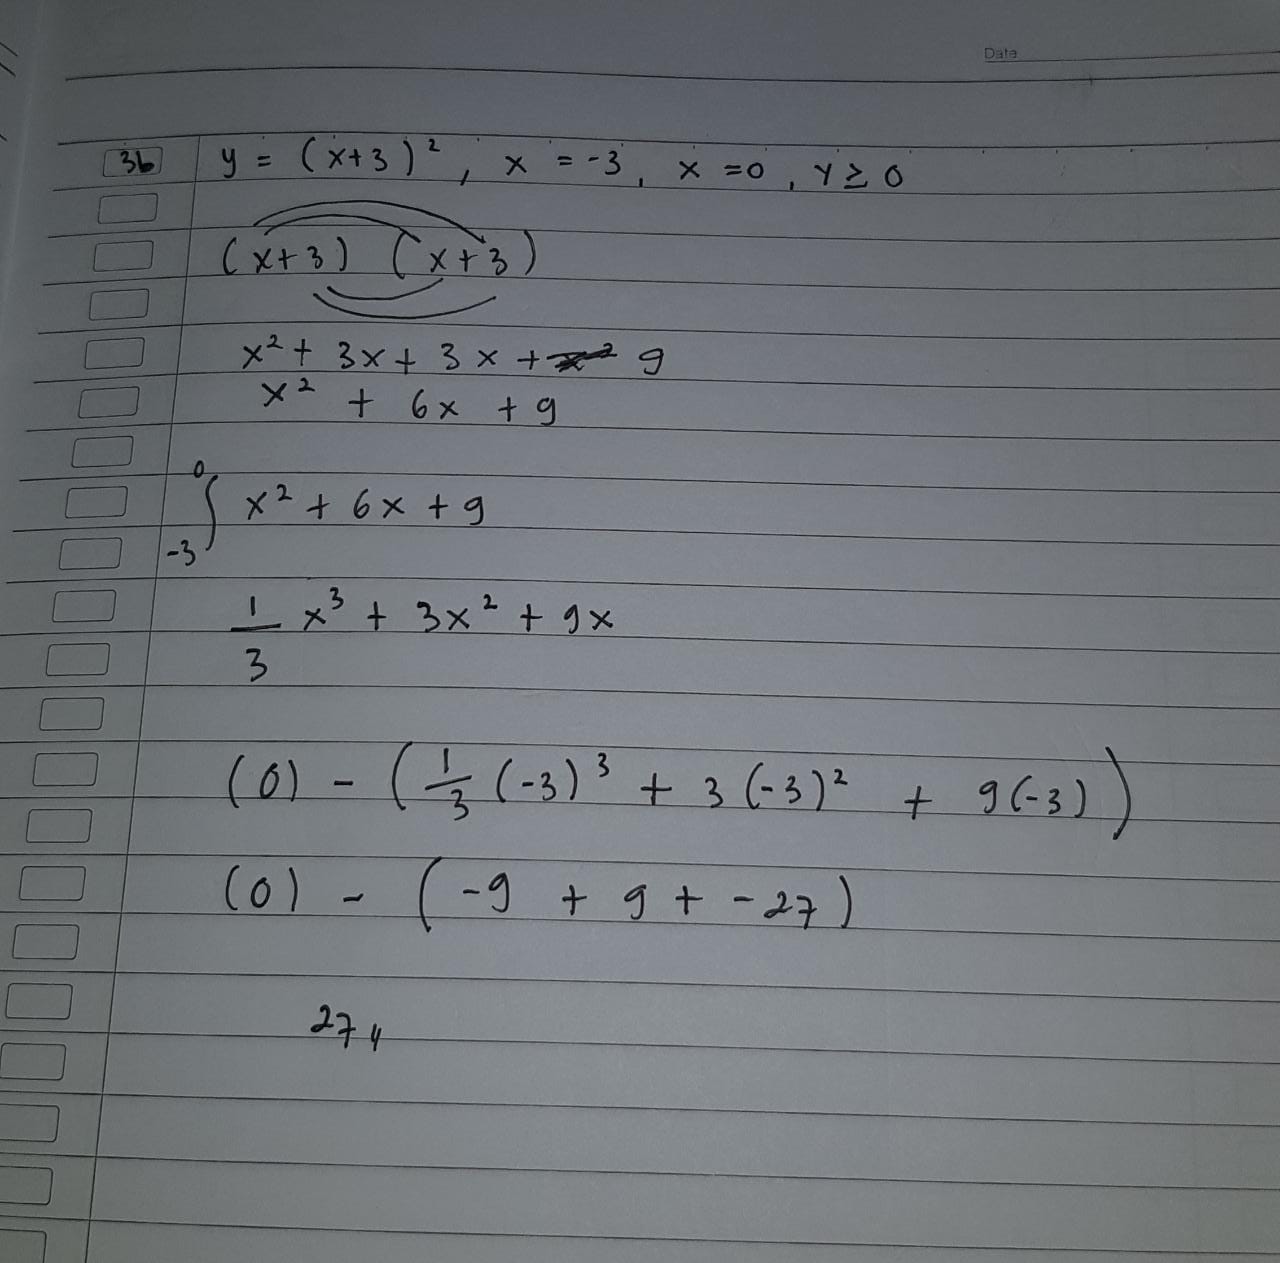 Date
36 y = (x+3)², x = -3, x = 0, Y ≥ 0
(x+3) (x+3)
x² + 3x + 3x + 9
x² + 6x + 9
0
∫ x² + 6x + 9
-3
1/3 x³ + 3x² + 9x
(0) - (1/3 (-3)³ + 3(-3)² + 9(-3))
(0) - (-9 + 9 + -27)
27 //